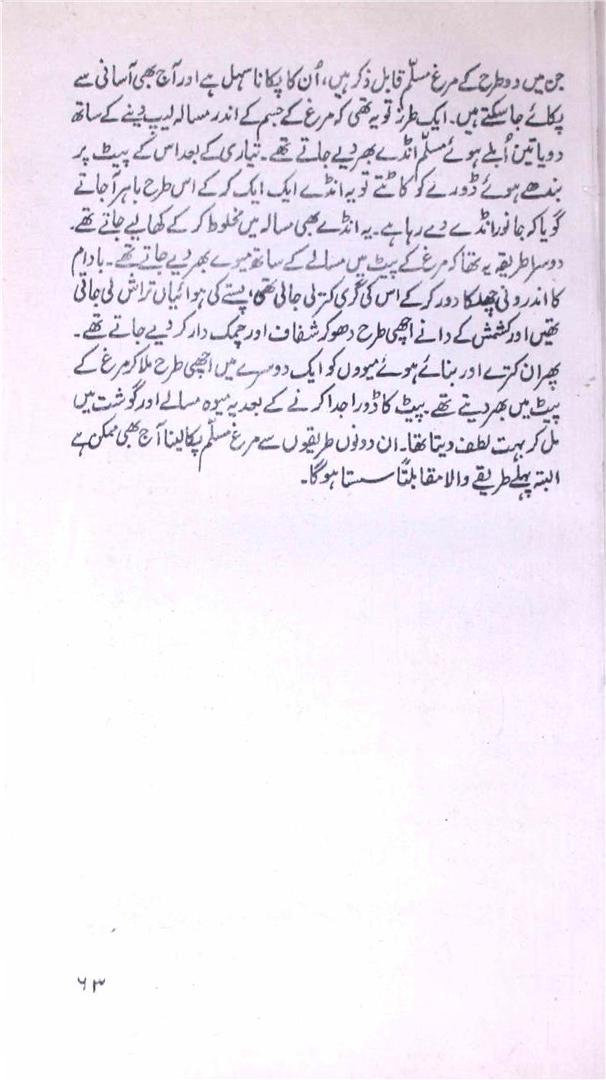 جن میں دو طرح کے مرغ مسلّم قابل ذکر ہیں، اُن کا پکانا سہل ہے اور آج بھی آسانی سے
پکائے جا سکتے ہیں۔ ایک طرز تو یہ تھی کہ مرغ کے جسم کے اندر مسالہ لیپ دینے کے ساتھ
دو یا تین اُبلے ہوئے مسلّم انڈے بھر دیے جاتے تھے۔ تیاری کے بعد اس کے پیٹ پر
بندھے ہوئے ڈورے کو کاٹتے تو یہ انڈے ایک ایک کر کے اس طرح باہر آجاتے
گویا کہ جانور انڈے دے رہا ہے۔ یہ انڈے بھی مسالہ میں مخلوط کر کے کھا لیے جاتے تھے۔
دوسرا طریقہ یہ تھا کہ مرغ کے پیٹ میں مسالے کے ساتھ میوے بھر دیے جاتے تھے۔ بادام
کا اندرونی چھلکا دور کر کے اس کی گری کتر لی جاتی تھی، پستے کی ہوائیاں تراش لی جاتی
تھیں اور کشمش کے دانے اچھی طرح دھو کر شفاف اور چمک دار کر دیے جاتے تھے۔
پھر ان کترے اور بنائے ہوئے میووں کو ایک دوسرے میں اچھی طرح ملا کر مرغ کے
پیٹ میں بھر دیتے تھے۔ پیٹ کا ڈورا جدا کرنے کے بعد یہ میوہ مسالے اور گوشت میں
مل کر بہت لطف دیتا تھا۔ ان دونوں طریقوں سے مرغ مسلّم پکا لینا آج بھی ممکن ہے
البتہ پہلے طریقے والا مقابلتاً سستا ہوگا۔
۶۳